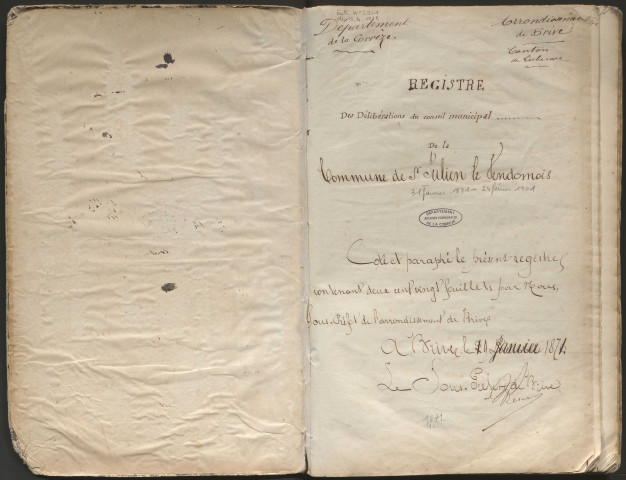 Département
de la Corrèze.
Arrondissement
de Brive
Canton
de Lubersac
REGISTRE
Des Délibérations du conseil municipal
De la
Commune de St Julien le Vendomois
31 janvier 1871 - 24 février 1901
DEPARTEMENT
DE LA CORREZE
Coté et paraphé le présent registre
contenant deux cent vingt feuillets par Nous,
Sous-Préfet de l'arrondissement de Brive
A Brive le Janvier 1871.
Le Sous-Préfet de Brive
1871